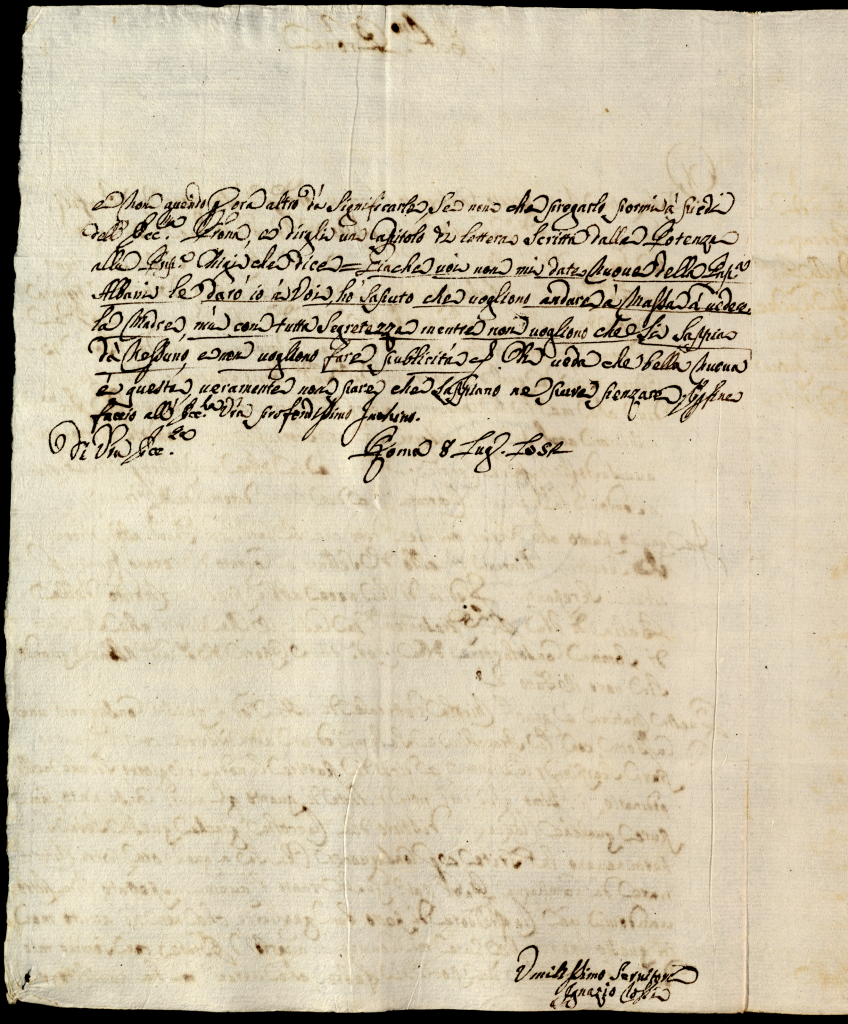 e non avendo p. ora altro da significarle, se non che pregarlo pormi à piedi
dell' Ecc.ma Prona, e dirgli un Capitolo di lettera scritta dalla Potenza
alla Prip.a Chigi che dice = Giache voi non mi date nuove della Prip.a
Albani le darò io à Voi, hò saputo che vogliono andare à Massa à vedere
la Madre, mà con tutta segretezza mentre non vogliono che si sappia
dà nessuno, e non vogliono fare publicità che bella nuova
è questa veramente non pare che sappiano ne fine
faccio all' Ecc.za Vra profondissimo Inchino.
Di Vra Ecc.za Roma 8 Lug.
Umilissimo Servitore
Ignazio